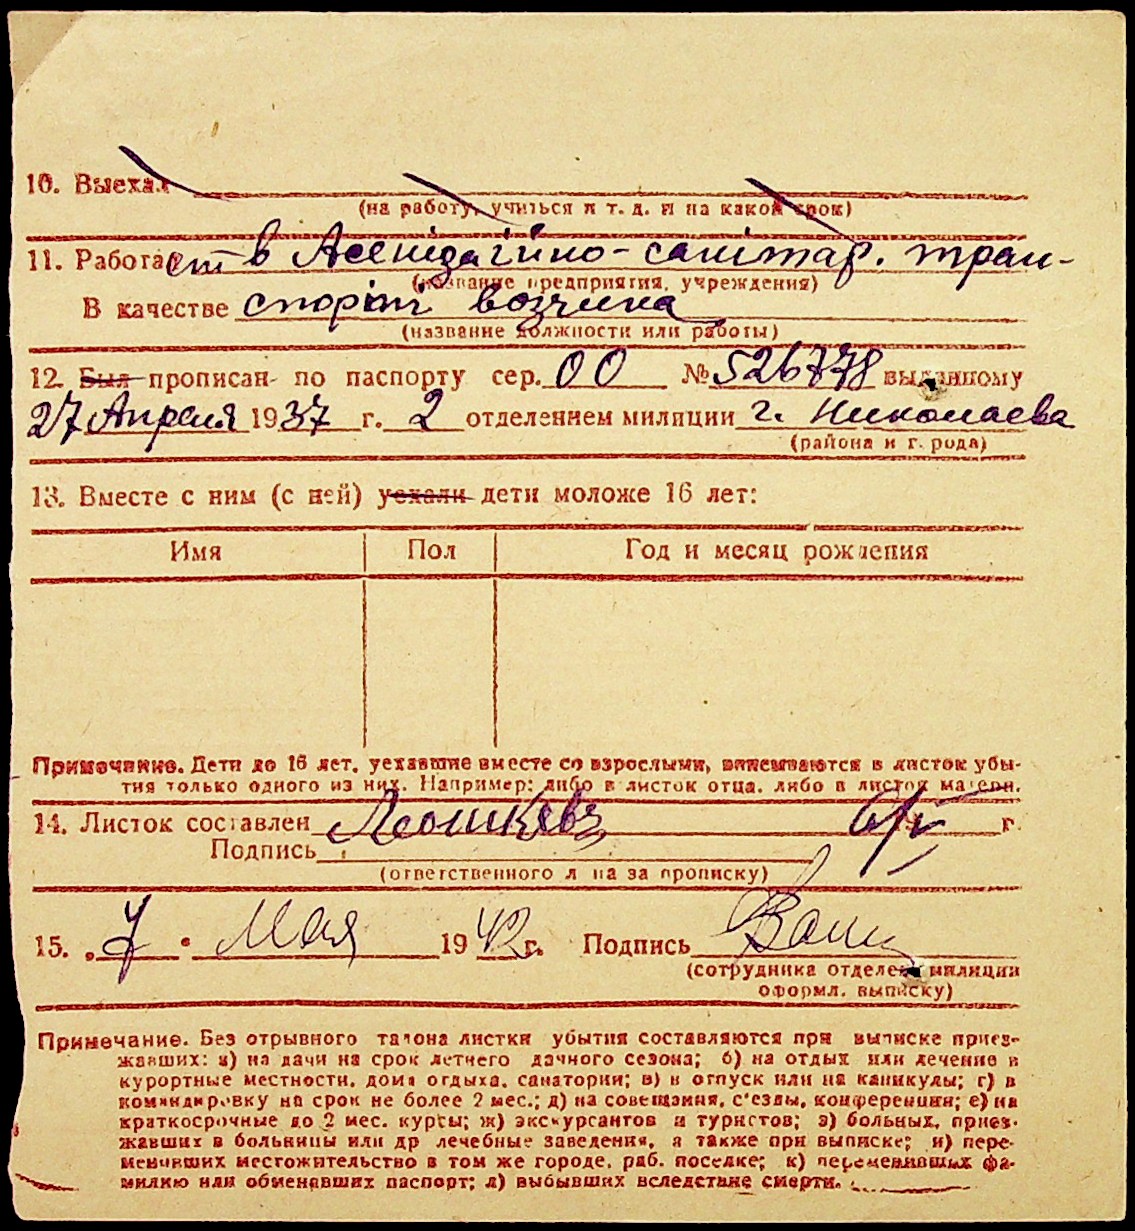 10. Выехал
(на работу, учиться и т. д. и на какой срок)
11. Работает в Асенідзаційно-санітар. тран-
(название предприятия, учреждения)
В качестве спорті возчика
(название должности или работы)
12. Был прописан по паспорту сер. 00 № 526778 выданному
27 Апреля 1937 г. 2 отделением милиции г. Николаева
(района и города)
13. Вместе с ним (с ней) уехали дети моложе 16 лет:
Имя Пол Год и месяц рождения
Примечание. Дети до 16 лет, уехавшие вместе со взрослыми, вписываются в листок убы-
тия только одного из них. Например: либо в листок отца, либо в листок матери.
14. Листок составлен 6/V г.
Подпись
(ответственного лица за прописку)
15. „7" Мая 1942 г. Подпись
(сотрудника отделен. милиции
оформл. выписку)
Примечание. Без отрывного талона листки убытия составляются при выписке приез-
жавших: а) на дачи на срок летнего дачного сезона; б) на отдых или лечение в
курортные местности, дома отдыха, санатории; в) в отпуск или на каникулы; г) в
командировку на срок не более 2 мес.; д) на совещания, с'езды, конференции; е) на
краткосрочные до 2 мес. курсы; ж) экскурсантов и туристов; з) больных, приез-
жавших в больницы или др лечебные заведения, а также при выписке; и) пере-
менивших местожительство в том же городе, раб. поселке; к) переменивших фа-
милию или обменявших паспорт; л) выбывших вследствие смерти.